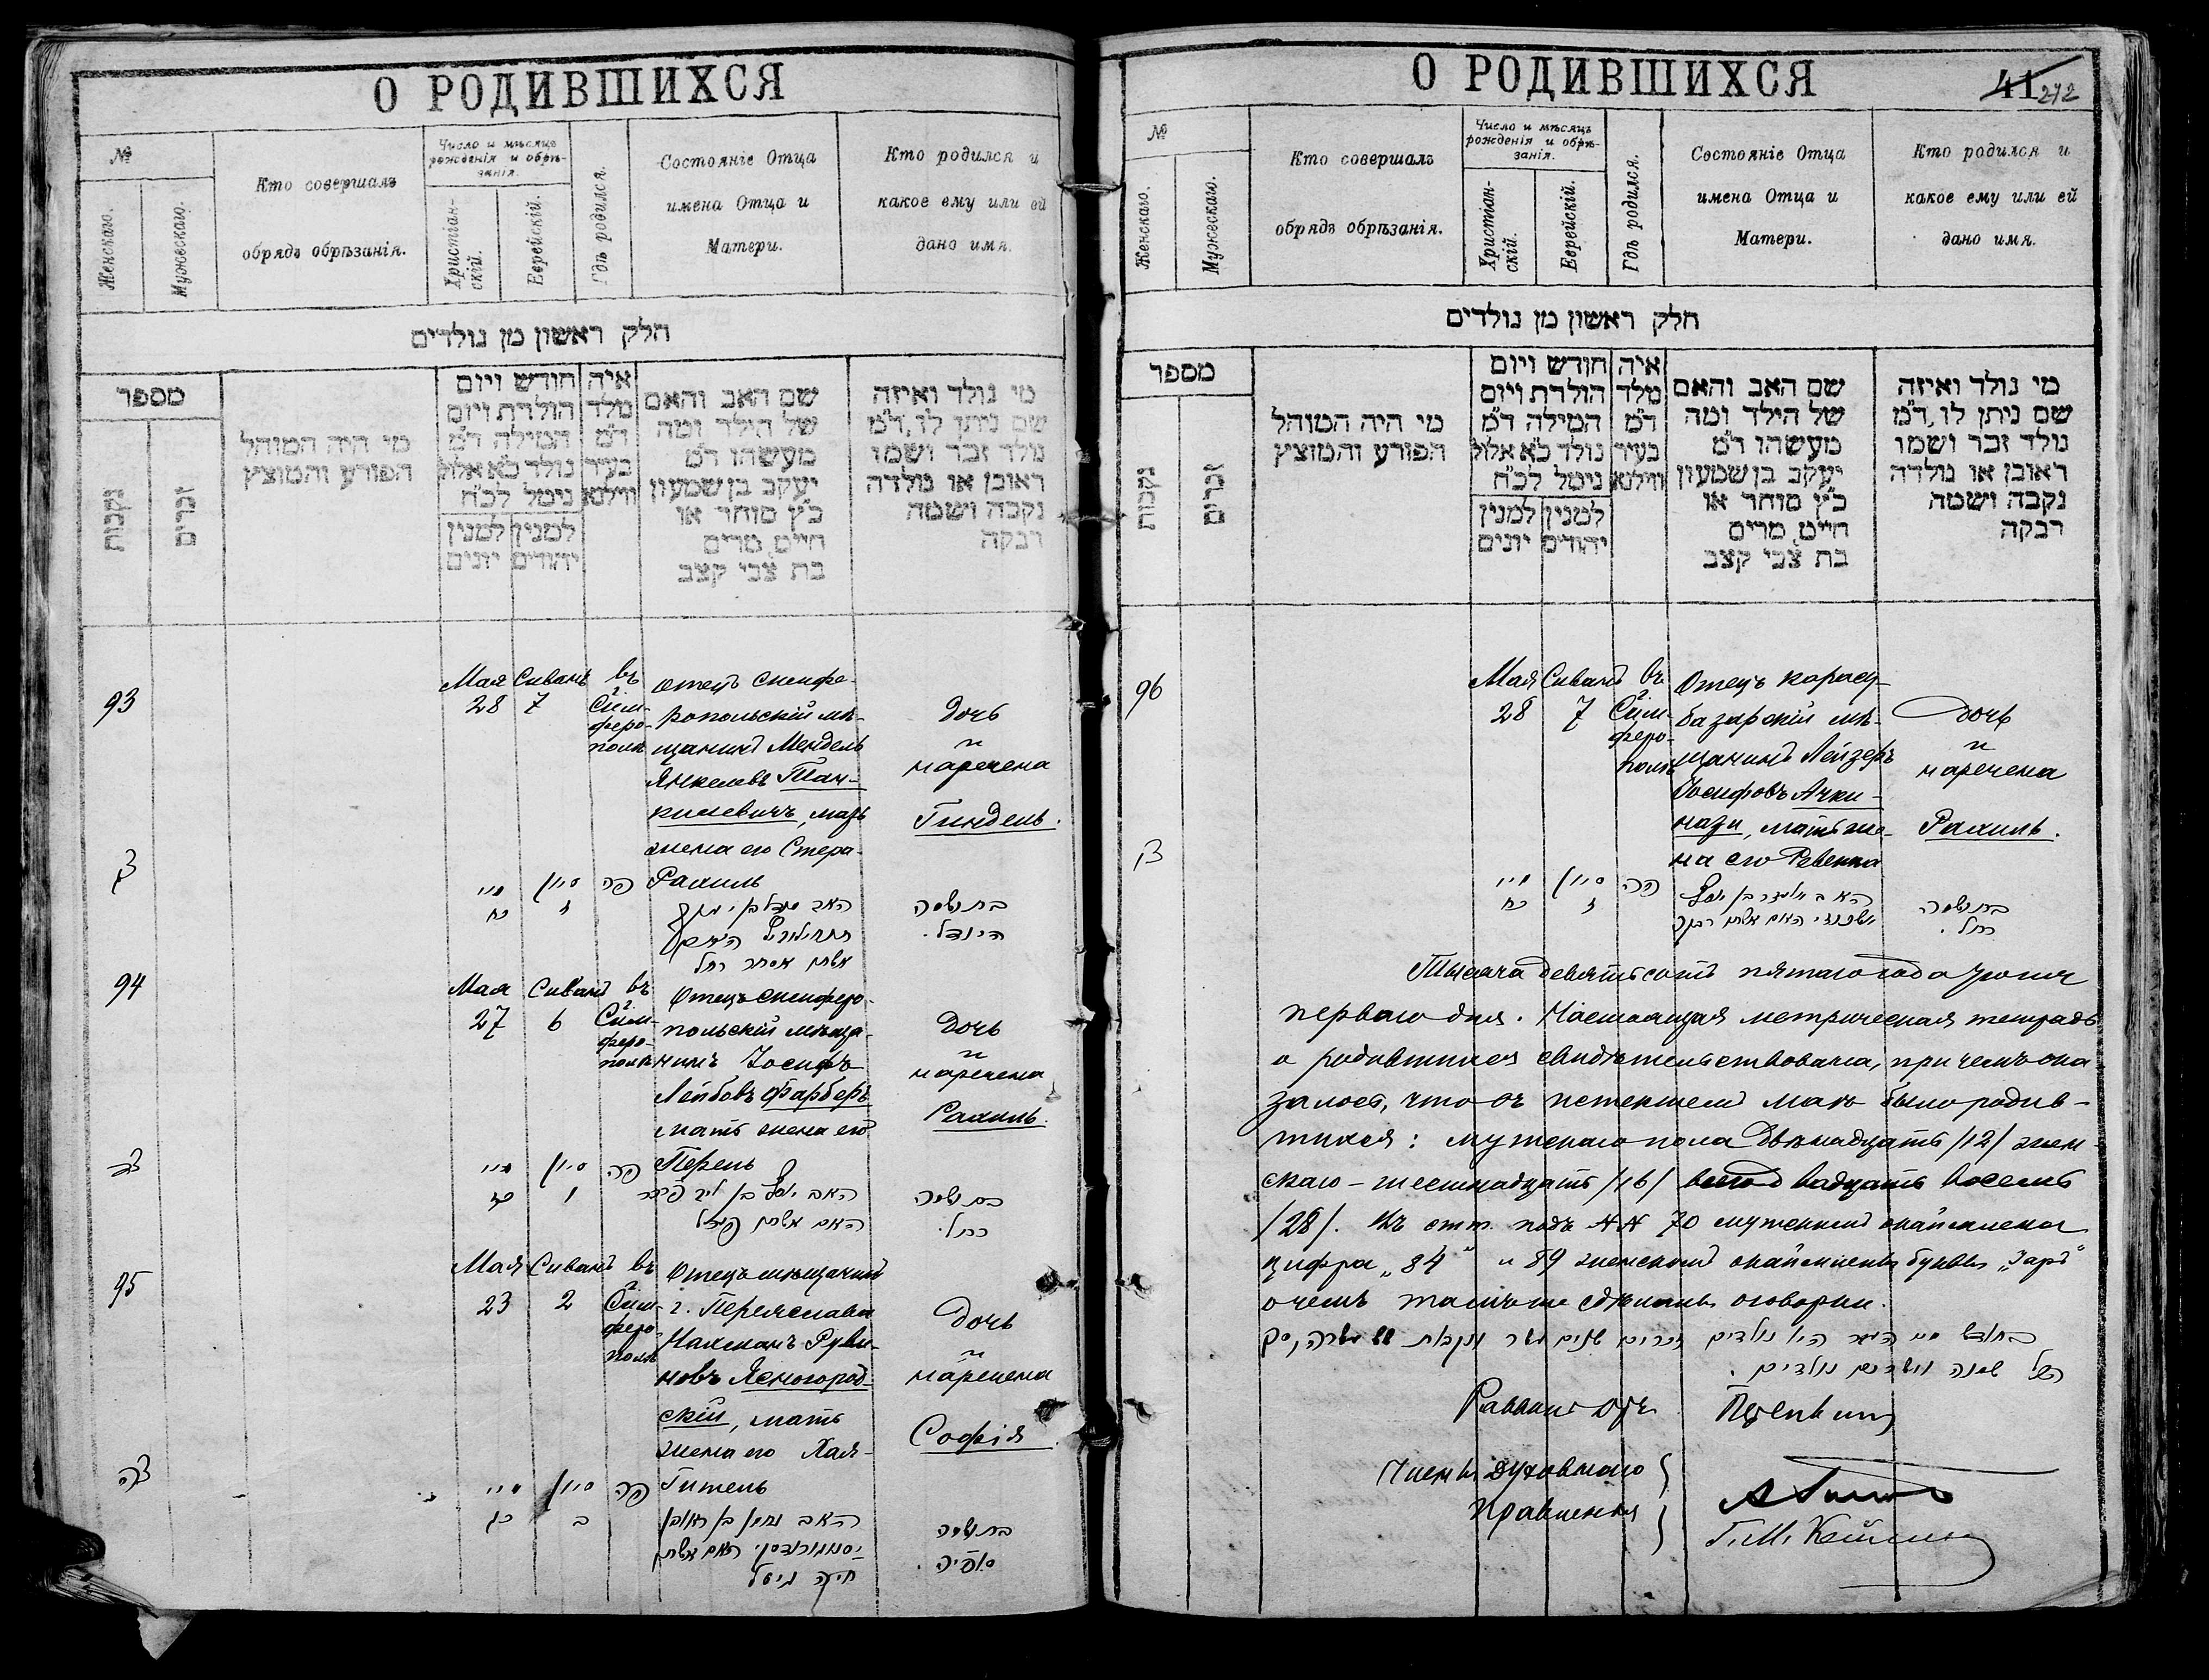 О РОДИВШИХСЯ
№
Женскаго.
Мужескаго.
Кто совершалъ
обрядъ обрѣзанія.
Число и мѣсяцъ
рожденія и обрѣ-
занія.
Христіан-
скій.
Еврейскій.
Гдѣ родился.
Состояніе Отца
имена Отца и
Матери.
Кто родился и
какое ему или ей
дано имя.
חלק ראשון מן נולדים
מספר
נקבות
זכרים
מי היה המוהל
הפורע והמוצץ
חודש ויום
הולדת ויום
המילה ד"מ
נולד כ"א אלול
נימל לכ"ח
למנין למנין
יהודים יונים
איה
מלד
ד"מ
בעיר
ווילנא
שם האב והאם
של הילד ומה
מעשהו ד"מ
יעקב בן שמעון
כ"ץ סוחר או
חייט, מרים
בת צבי קצב
מי נולד ואיזה
שם ניתן לו, ד"מ
נולד זכר ושמו
ראובן או נולדה
נקבה ושמה
רבקה
93
Мая Сиванъ въ
28 7
г. Сим-
феро-
полѣ
Отецъ Симфе-
ропольскій мѣ-
щанинъ Мендель
Янкелевъ
мать
жена его Стера-
Рахиль
Дочь
и
наречена
Гиндель.
מיי סיון פה
כח ז
בת ושמה
הינדל.
94
Мая Сиванъ въ
27 6
г. Сим-
феро-
полѣ
Отецъ Симферо-
польскій мѣща-
нинъ Іосифъ
Лейбовъ Фарберъ
мать жена его
Перель
Дочь
и
наречена
Рахиль.
צד
מיי סיון פה
כז ו
האב יוסף בן ליב פארבער
האם אשתו פערל
בת ושמה
רחל.
95
Мая Сиванъ въ
23 2
г. Сим-
феро-
полѣ
Отецъ мѣщанинъ
г. Переяслава
Нахманъ Руви-
новъ Ясногород-
скій, мать
жена его Хая-
Гитель
Дочь
и
наречена
Софія.
צה
מיי סיון פה
כג ב
האב נחמן בן ראובן
יסנוגורודסקי האם אשתו
חיה גיטל
בת ושמה
סופיה.
О РОДИВШИХСЯ
41 272
№
Женскаго.
Мужескаго.
Кто совершалъ
обрядъ обрѣзанія.
Число и мѣсяцъ
рожденія и обрѣ-
занія.
Христіан-
скій.
Еврейскій.
Гдѣ родился.
Состояніе Отца
имена Отца и
Матери.
Кто родился и
какое ему или ей
дано имя.
חלק ראשון מן נולדים
מספר
נקבות
זכרים
מי היה המוהל
הפורע והמוצץ
חודש ויום
הולדת ויום
המילה ד"מ
נולד כ"א אלול
נימל לכ"ח
למנין למנין
יהודים יונים
איה
מלד
ד"מ
בעיר
ווילנא
שם האב והאם
של הילד ומה
מעשהו ד"מ
יעקב בן שמעון
כ"ץ סוחר או
חייט, מרים
בת צבי קצב
מי נולד ואיזה
שם ניתן לו, ד"מ
נולד זכר ושמו
ראובן או נולדה
נקבה ושמה
רבקה
96
Мая Сиванъ въ
28 7
г. Сим-
феро-
полѣ
Отецъ Карасу-
базарскій мѣ-
щанинъ Лейзеръ
Іосифовъ Ачки-
нази, мать же-
на его Ревекка
Дочь
и
наречена
Рахиль.
צו
מיי סיון פה
כח ז
האב אליעזר בן יוסף
אשכנזי האם אשתו רבקה
בת ושמה
רחל.
Тысяча девятьсотъ пятаго года Іюня
перваго дня. Настоящая метрическая тетрадь
о родившихся свидѣтельствована, при чемъ ока-
залось, что въ истекшемъ маѣ было родив-
шихся: мужскаго пола двѣнадцать /12/ жен-
скаго – шестнадцать /16/ всего двадцать восемь
/28/. Къ стт. подъ №№ 70 мужскимъ
цифра „84“ и 89 женскимъ буквы
о чемъ тамъ же сдѣланы оговорки.
שמונה ועשרים נולדים.
Раввинъ
Члены Духовнаго
Правленія